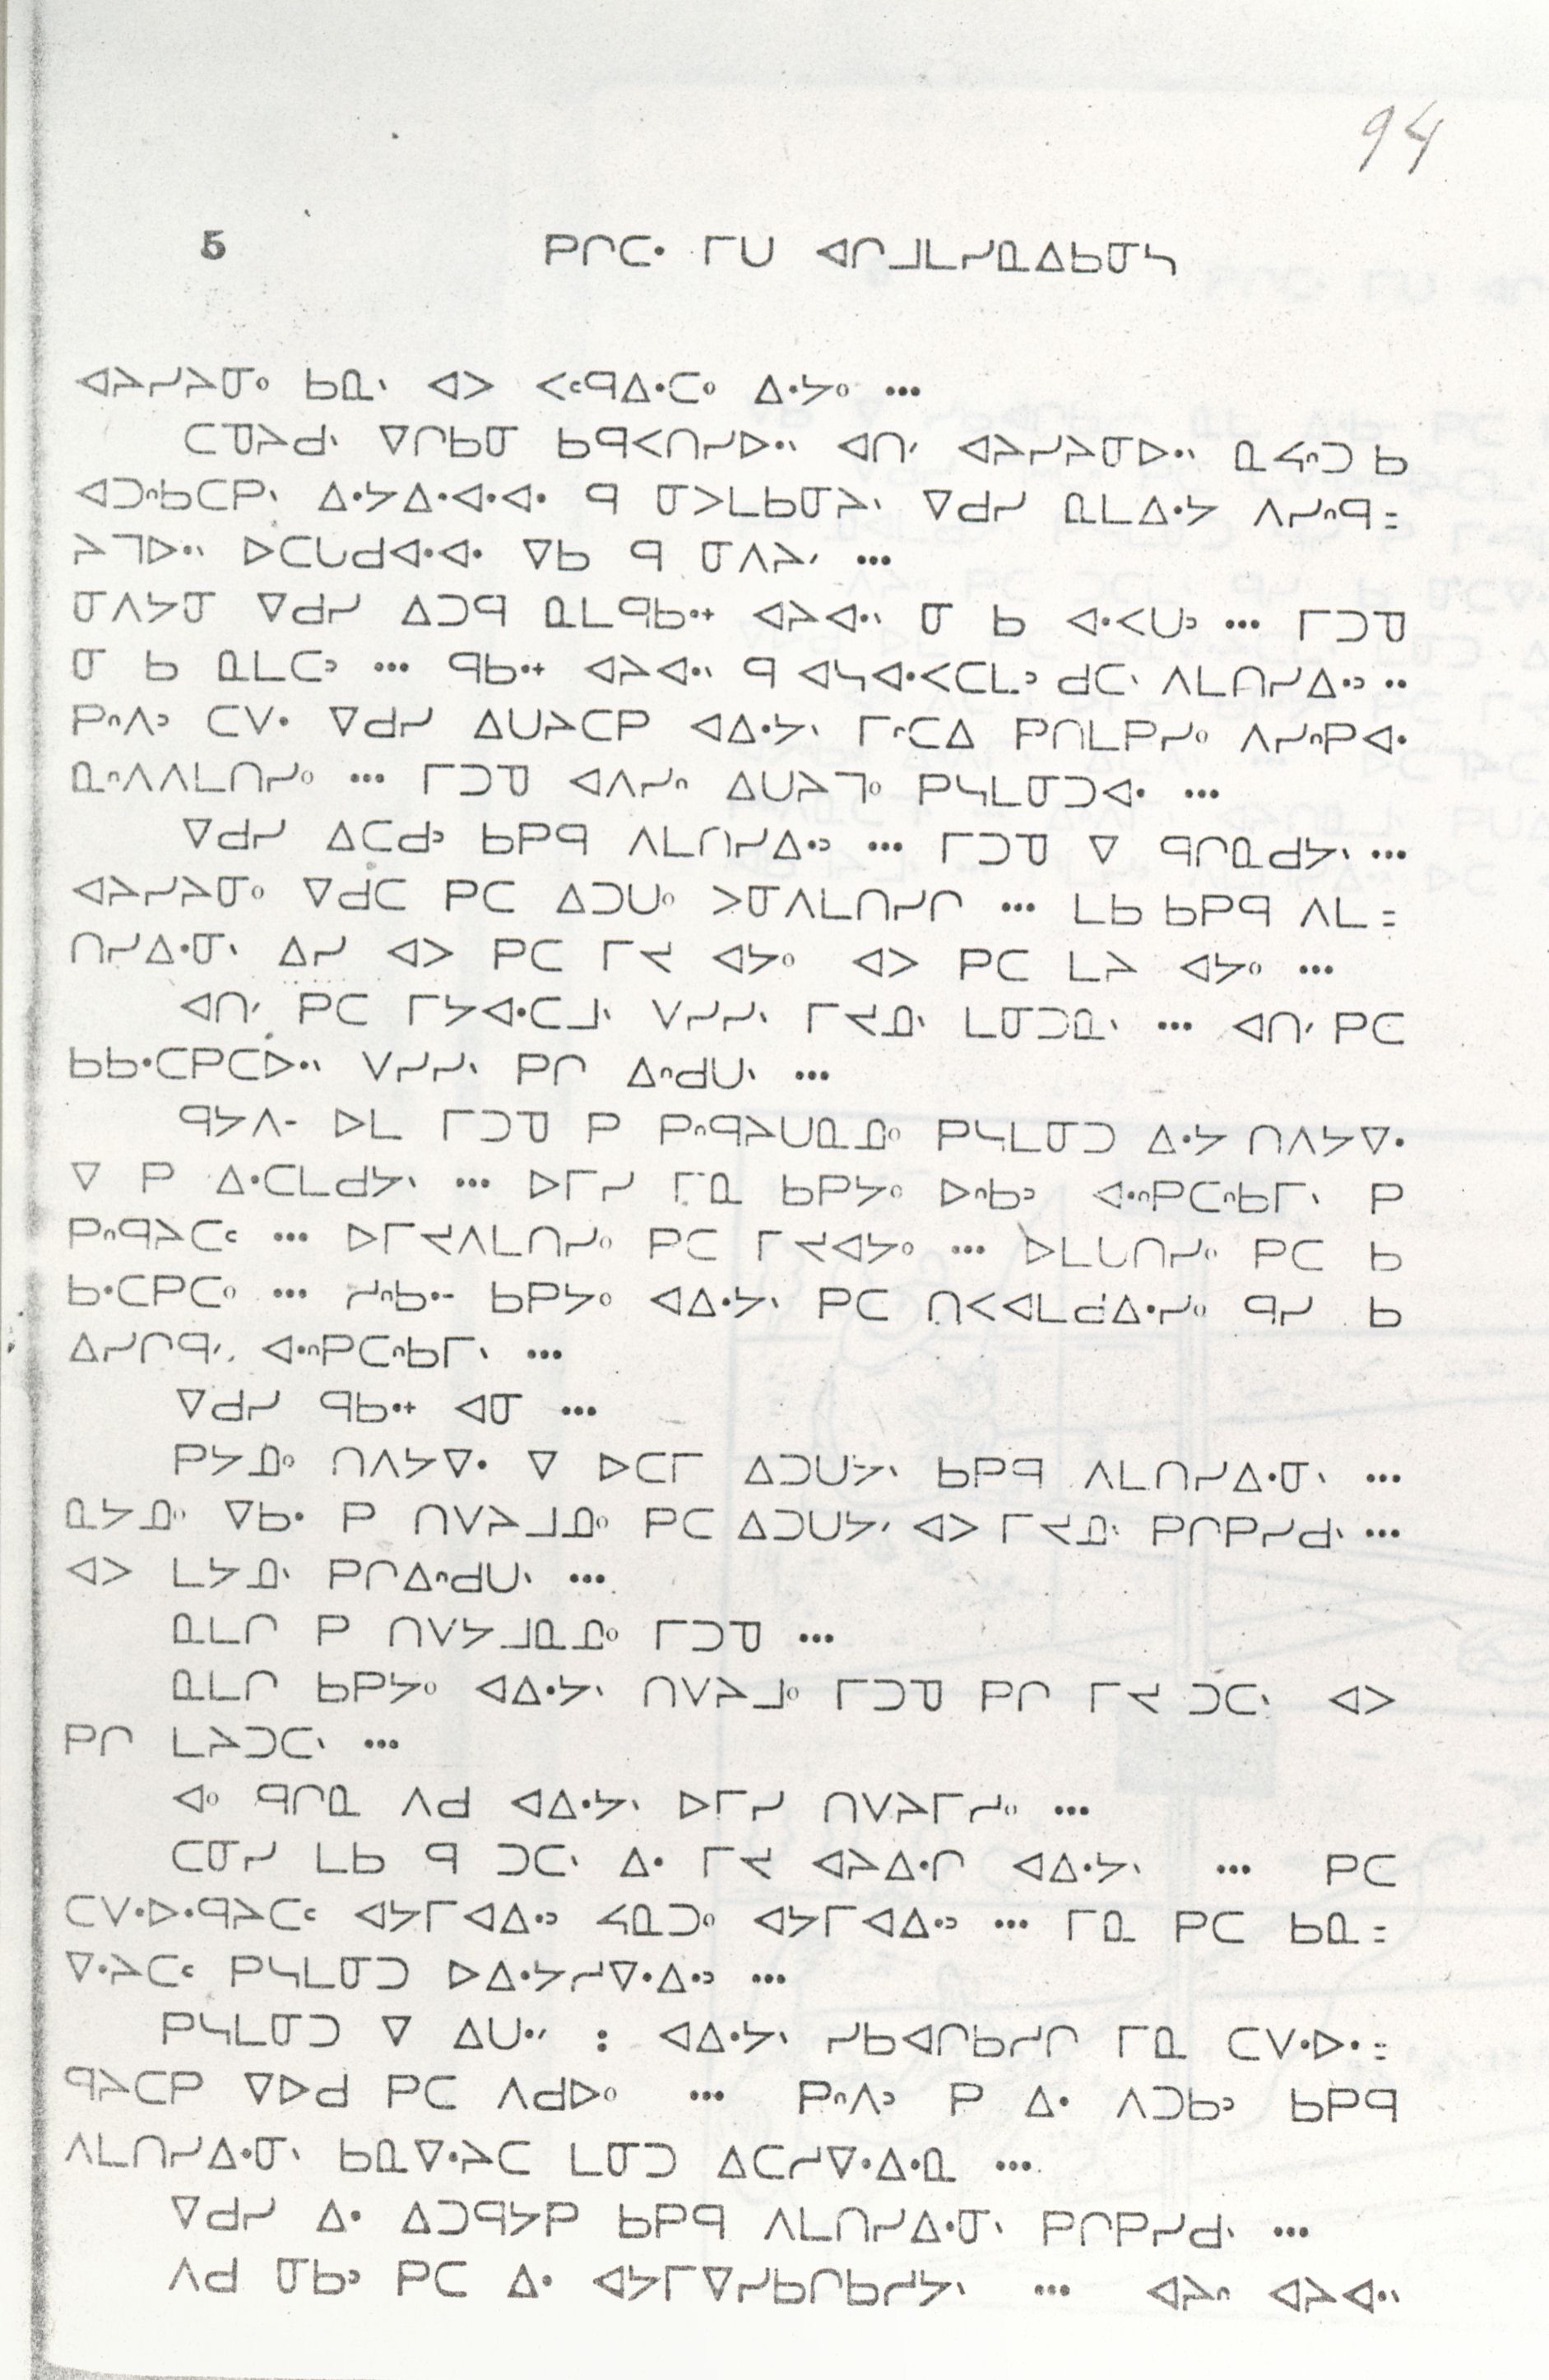 94
5 ᑭᒋᑕᐧ ᒥᑌ ᐊᒋᒧᒪᓯᓇᐃᑲᓂᓴ
ᐊᔨᓯᔨᓂᐤ ᑲᓇᐠ ᐊᐳ ᐸᑦᑫᐃᐧᑕᐤ ᐃᐧᔭᐤ ...
ᑕᓀᔨᑯᐠ ᐁᒋᑲᓂ ᑲᑫᐸᑎᓯᐅᐧᐠ ᐊᑎᐟ ᐊᔨᓯᔨᓂᐅᐧᐠ ᓇᐹᐣᑐ ᑲ
ᐊᑐᐣᑲᑕᑭᐠ ᐃᐧᔭᐃᐧᐊᐧᐊᐧ ᑫ ᓂᐳᒪᑲᓂᔨᐠ ᐁᑯᓯ ᓇᒪᐃᐧᔭ ᐱᓯᐣᑫ=
ᔨᒣᐅᐧᐠ ᐅᑕᑌᑯᐊᐧᐊᐧ ᐁᑲ ᑫ ᓂᐱᔨᐟ ...
ᓂᐱᔭᓂ ᐁᑯᓯ ᐃᑐᑫ ᓇᒪᑫᑲᐧᐩ ᐊᔨᐊᐧᐠ ᓂ ᑲ ᐊᐧᐸᑌᐣ ... ᒥᑐᓀ
ᓂ ᑲ ᓇᒪᑕᐣ ... ᑫᑲᐧᐩ ᐊᔨᐊᐧᐠ ᑫ ᐊᓴᐊᐧᐸᑕᒪᐣ ᑯᑕᐠ ᐱᒪᑎᓯᐃᐧᐣ ..
ᑭᐢᐱᐣ ᑕᐯᐧ ᐁᑯᓯ ᐃᑌᔨᑕᑭ ᐊᐃᐧᔭᐠ ᒥᐢᑕᐃ ᑭᑎᒪᑭᓯᐤ ᐱᓯᐢᑭᐊᐧ
ᓇᐢᐱᐱᒪᑎᓯᐤ ... ᒥᑐᓀ ᐊᐱᓯᐢ ᐃᑌᔨᒣᐤ ᑭᓴᒪᓂᑐᐊᐧ ...
ᐁᑯᓯ ᐃᑕᑯᐣ ᑲᑭᑫ ᐱᒪᑎᓯᐃᐧᐣ ... ᒥᑐᓀ ᐁ ᑫᒋᓇᑯᔭᐠ ...
ᐊᔨᓯᔨᓂᐤ ᐁᑯᑕ ᑭᑕ ᐃᑐᑌᐤ ᐳᓂᐱᒪᑎᓯᒋ ... ᒪᑲ ᑲᑭᑫ ᐱᒪ=
ᑎᓯᐃᐧᓂᐠ ᐃᓯ ᐊᐳ ᑭᑕ ᒥᔪ ᐊᔭᐤ ᐊᐳ ᑭᑕ ᒪᔨ ᐊᔭᐤ ...
ᐊᑎᐟ ᑭᑕ ᒥᔭᐊᐧᑕᒧᐠ ᐯᓯᓯᐠ ᒥᔪᓄᐠ ᒪᓂᑐᓇᐠ ... ᐊᑎᐟ ᑭᑕ
ᑲᑲᐧᑕᑭᑕᐅᐧᐠ ᐯᓯᓯᐠ ᑭᒋ ᐃᐢᑯᑌᐠ ...
ᑫᔭᐱᐨ ᐅᒪ ᒥᑐᓀ ᑭ ᑭᐢᑫᔨᑌᓇᓄᐤ ᑭᓴᒪᓂᑐ ᐃᐧᔭ ᑎᐱᔭᐁᐧ
ᐁ ᑭ ᐃᐧᑕᒪᑯᔭᐠ ... ᐅᒥᓯ ᒥᓇ ᑲᑭᔭᐤ ᐅᐢᑲᐣ ᐊᐧᐢᑭᑕᐢᑲᒥᐠ ᑭ
ᑭᐢᑫᔨᑕᑦ ... ᐅᒥᔪᐱᒪᑎᓯᐤ ᑭᑕ ᒥᔪᐊᔭᐤ ... ᐅᒪᒪᑎᓯᐤ ᑭᑕ ᑲ
ᑲᐧᑕᑭᑕᐤ ... ᓯᐢᑲᐧᐨ ᑲᑭᔭᐤ ᐊᐃᐧᔭᐠ ᑭᑕ ᑎᐸᐊᒪᑯᐃᐧᓯᐤ ᑫᓯ ᑲ
ᐃᓯᒋᑫᐟ ᐊᐧᐢᑭᑕᐢᑲᒥᐠ ...
ᐁᑯᓯ ᑫᑲᐧᐩ ᐊᓂ ...
ᑭᔭᓄᐤ ᑎᐱᔭᐁᐧ ᐁ ᐅᑕᒥ ᐃᑐᑌᔭᐠ ᑲᑭᑫ ᐱᒪᑎᓯᐃᐧᓂᐠ ...
ᓇᔭᓄᐤ ᐁᑲᐧ ᑭ ᑎᐯᔨᒧᓄᐤ ᑭᑕ ᐃᑐᑌᔭᐠ ᐊᐳ ᒥᔪᓄᐠ ᑭᒋᑭᓯᑯᐠ ...
ᐊᐳ ᒪᔭᓄᐠ ᑭᒋᐃᐢᑯᑌᐠ ...
ᓇᒪᒋ ᑭ ᑎᐯᔭᒧᓇᓄᐤ ᒥᑐᓀ ...
ᓇᒪᒋ ᑲᑭᔭᐤ ᐊᐃᐧᔭᐠ ᑎᐯᔨᒧᐤ ᒥᑐᓀ ᑭᒋ ᒥᔪ ᑐᑕᐠ ᐊᐳ
ᑭᒋ ᒪᔨᑐᑕᐠ ...
ᐊᐤ ᑫᒋᓇ ᐱᑯ ᐊᐃᐧᔭᐠ ᐅᒥᓯ ᑎᐯᔨᒥᓱᐤ ...
ᑕᓂᓯ ᒪᑲ ᑫ ᑐᑕᐠ ᐃᐧ ᒥᔪ ᐊᔨᐃᐧᒋ ᐊᐃᐧᔭᐠ ... ᑭᑕ
ᑕᐯᐧᐅᐧᑫᔨᑕᑦ ᐊᔭᒥᐊᐃᐧᐣ ᐹᓇᑐᐤ ᐊᔭᒥᐊᐃᐧᐣ ... ᒥᓇ ᑭᑕ ᑲᓇ=
ᐁᐧᔨᑕᑦ ᑭᓴᒪᓂᑐ ᐅᐃᐧᔭᓱᐁᐧᐃᐧᐣ ...
ᑭᓴᒪᓂᑐ ᐁ ᐃᑌᐧᐟ : ᐊᐃᐧᔭᐠ ᓯᑲᐊᒋᑲᓱᒋ ᒥᓇ ᑕᐯᐧᐅᐧ=
ᑫᔨᑕᑭ ᐁᐅᑯ ᑭᑕ ᐱᑯᐅᐤ ... ᑭᐢᐱᐣ ᑭ ᐃᐧ ᐱᑐᑲᐣ ᑲᑭᑫ
ᐱᒪᑎᓯᐃᐧᓂᐠ ᑲᓇᐁᐧᔨᑕ ᒪᓂᑐ ᐃᑕᓱᐁᐧᐃᐧᓇ ...
ᐁᑯᓯ ᐃᐧ ᐃᑐᑫᔭᑭ ᑲᑭᑫ ᐱᒪᑎᓯᐃᐧᓂᐠ ᑭᒋᑭᓯᑯᐠ ...
ᐱᑯ ᓂᑲᐣ ᑭᑕ ᐃᐧ ᐊᔭᒥᐁᓯᑲᒋᑲᓱᔭᐠ ... ᐊᔨᐢ ᐊᔨᐊᐧᐠ